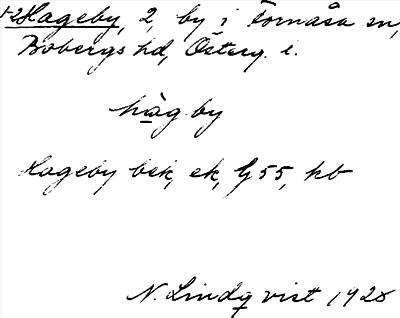 1-2 Hageby, 2, by i Fornåsa sn,
Bobergs hd, Österg. l.
hàg by
Hageby bsk, ek, G 55, kb
N. Lindqvist 1928